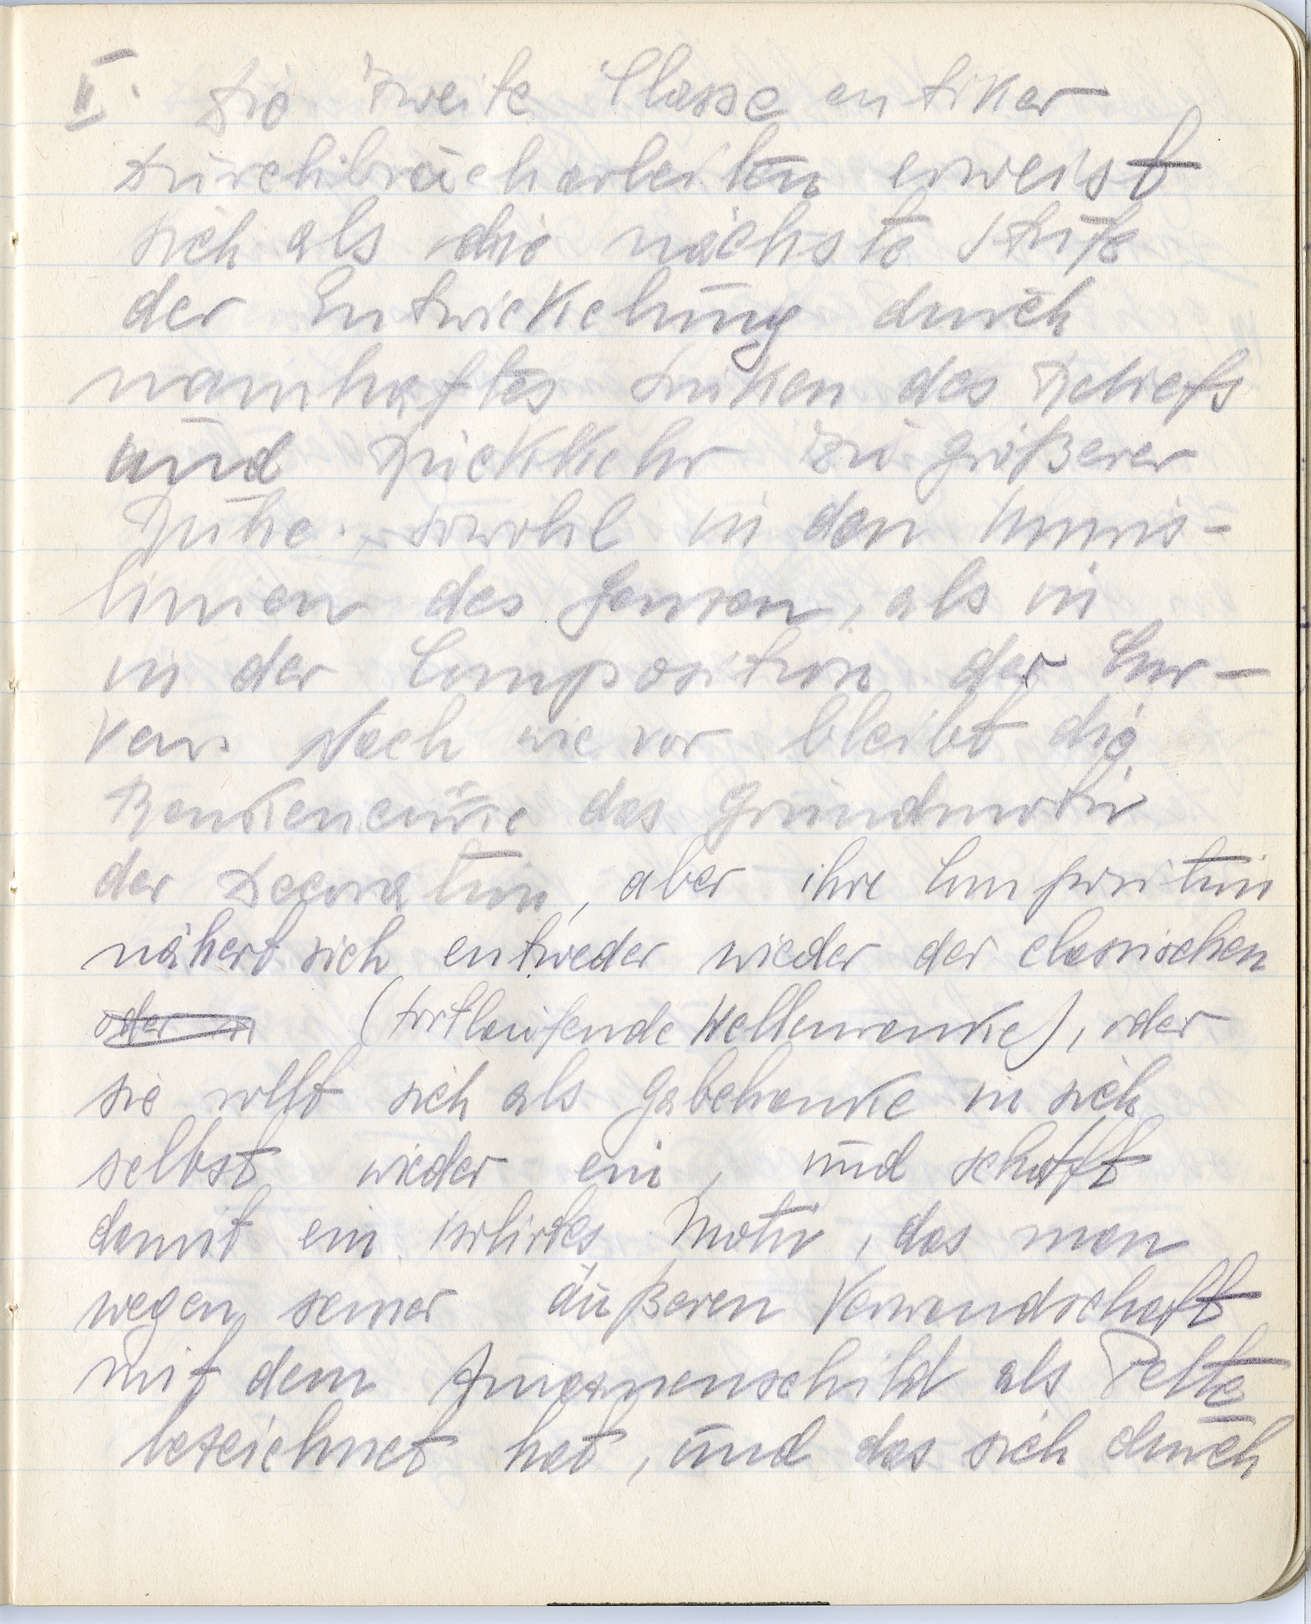 II. Die zweite Classe antiker
Durchbrucharbeiten erweist
sich als die nächste Stufe
der Entwickelung durch
namhaftes Sinken des Reliefs
und Rückkehr zu größerer
Ruhe sowohl in den Umris-
linien des Ganzen, als in
in der Composition der Cur-
ven. Nach wie vor bleibt die
Rankencurve das Grundmotiv
der Decoration, aber ihre Composition
nähert sich entweder wieder der classischen
oder (fortlaufende Wellenranke), oder
sie rollt sich als Gabelranke in sich
selbst wieder ein, und schafft
damit ein isolirtes Motiv, das man
wegen seiner äußeren Verwandschaft
mit dem Amazonenschild als Pelte
bezeichnet hat, und das sich durch